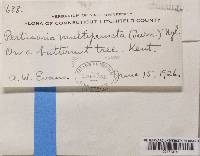 688.
HERBARIUM OF YALE UNIVERSITY
FLORA OF CONNECTICUT LITCHFIELD COUNTY
Pertusaria multipuncta (Turn.) Nyl.
On a butternut tree. Kent.
A. W. Evans. June 15, 1926.